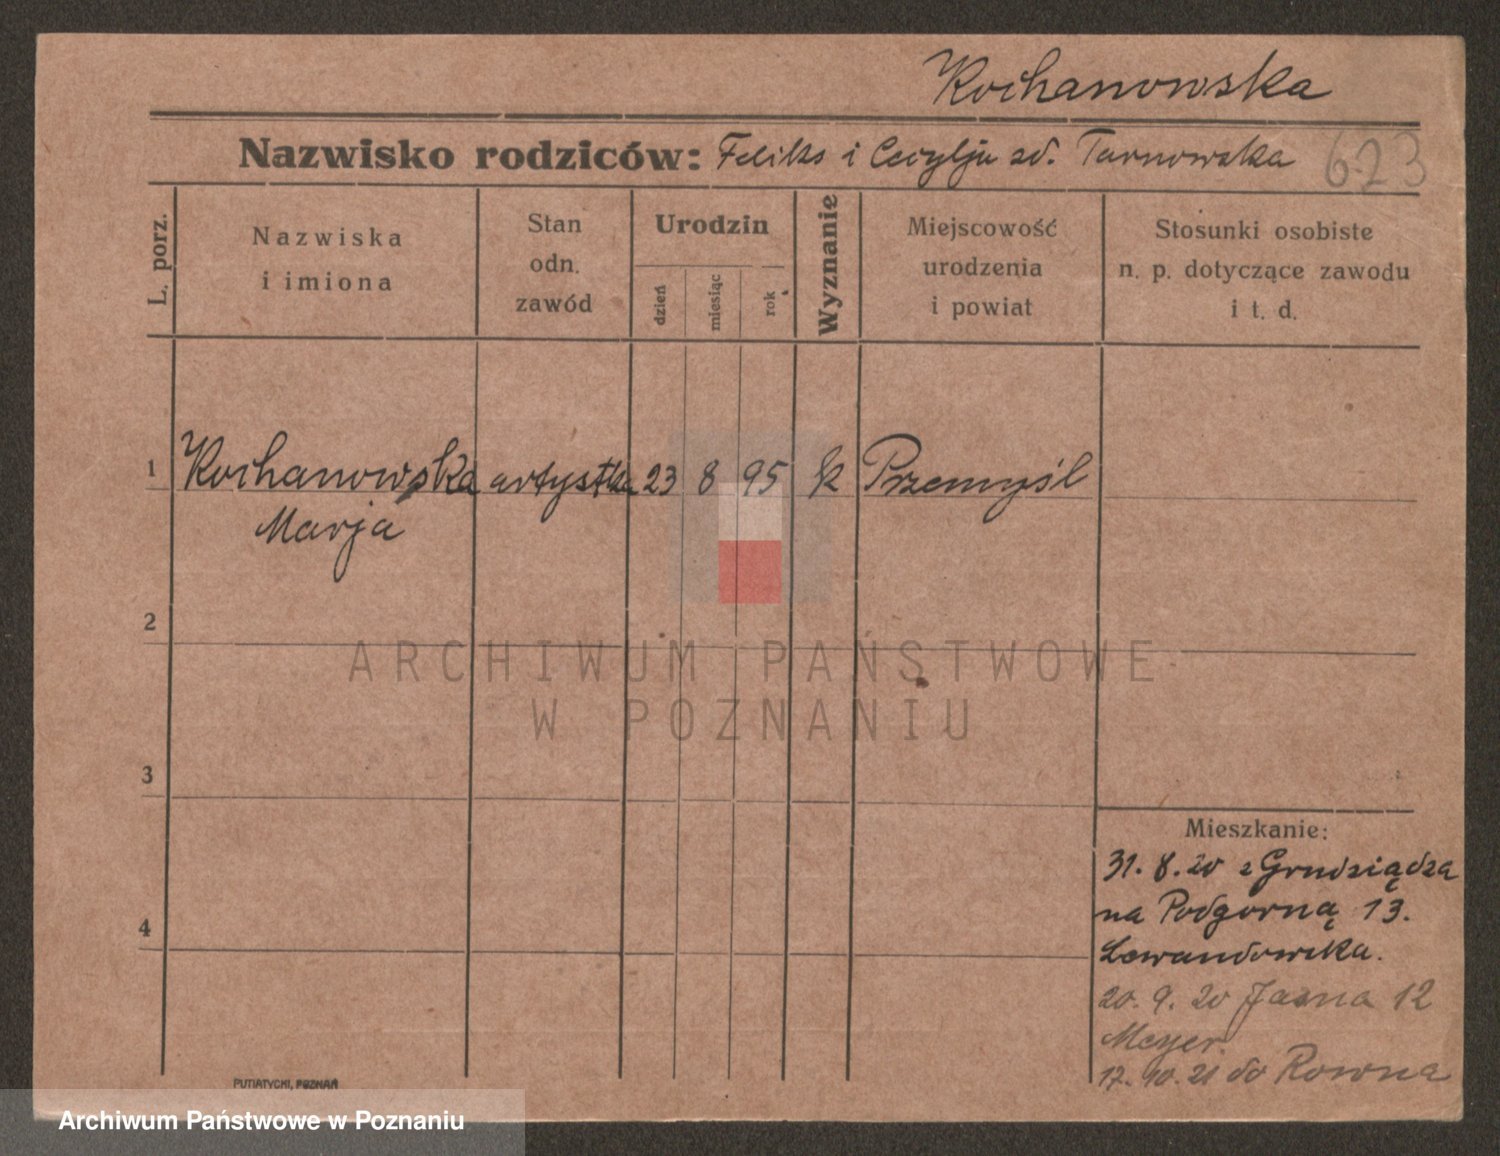 Kochanowska
Nazwisko rodziców: Feliks i Cecylja zd. Tarnowska 623
L. porz.
Nazwiska
i imiona
Stan
odn.
zawód
Urodzin
dzień
miesiąc
rok
Wyznanie
Miejscowość
urodzenia
i powiat
Stosunki osobiste
n. p. dotyczące zawodu
i t. d.
1 Kochanowska artystka 23 8 95 k Przemyśl
Marja
2
ARCHIWUM PAŃSTWOWE
W POZNANIU
3
Mieszkanie:
31. 8. 20 z Grudziądza
na Podgorną 13.
4
Lewandowska.
20. 9. 20 Jasna 12
Meyer.
17. 10. 21 do Rowna
PUTIATYCKI, POZNAŃ
Archiwum Państwowe w Poznaniu